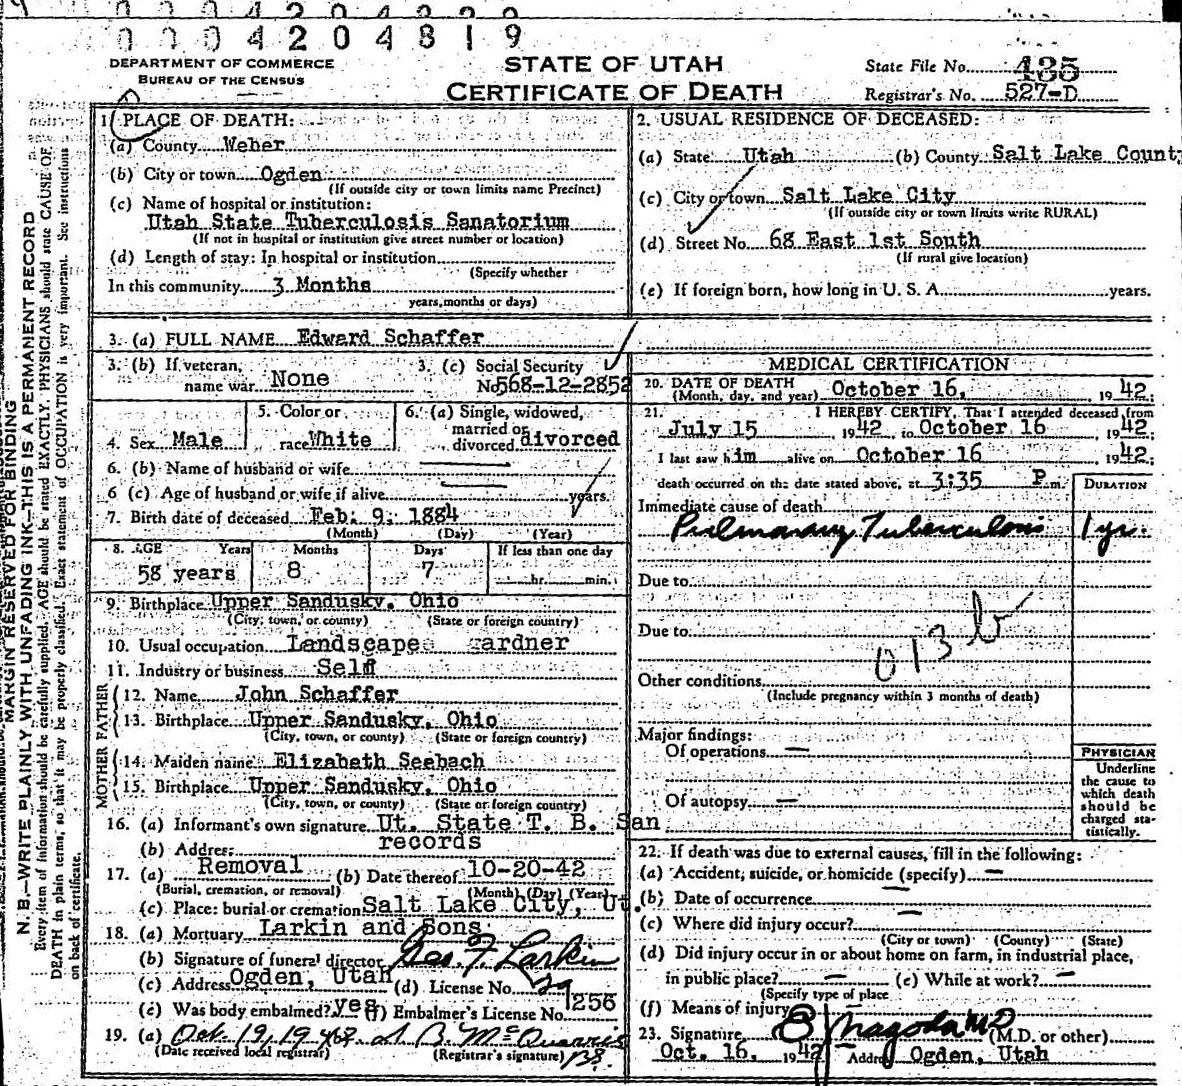 0 0 0 4 2 0 4 8 1 9
DEPARTMENT OF COMMERCE
BUREAU OF THE CENSUS
STATE OF UTAH
CERTIFICATE OF DEATH
State File No. 435
Registrar's No. 527-D
MARGIN RESERVED FOR BINDING
N. B.—WRITE PLAINLY WITH UNFADING INK—THIS IS A PERMANENT RECORD
Every item of information should be carefully supplied. AGE should be stated EXACTLY. PHYSICIANS should state CAUSE OF
DEATH in plain terms, so that it may be properly classified. Exact statement of OCCUPATION is very important. See instructions
on back of certificate.
1. PLACE OF DEATH:
(a) County Weber
(b) City or town Ogden
(If outside city or town limits name Precinct)
(c) Name of hospital or institution:
Utah State Tuberculosis Sanatorium
(If not in hospital or institution give street number or location)
(d) Length of stay: In hospital or institution
(Specify whether
In this community 3 Months
years, months or days)
2. USUAL RESIDENCE OF DECEASED:
(a) State Utah (b) County Salt Lake Count
(c) City or town Salt Lake City
(If outside city or town limits write RURAL)
(d) Street No. 68 East 1st South
(If rural give location)
(e) If foreign born, how long in U. S. A. years.
3. (a) FULL NAME Edward Schaffer
3. (b) If veteran, name war None
3. (c) Social Security No. 568-12-2852
4. Sex Male
5. Color or race White
6. (a) Single, widowed, married or divorced divorced
6. (b) Name of husband or wife
6 (c) Age of husband or wife if alive years.
7. Birth date of deceased Feb. 9, 1884
(Month) (Day) (Year)
8. AGE Years Months Days If less than one day
58 years 8 7 hr. min.
9. Birthplace Upper Sandusky, Ohio
(City, town, or county) (State or foreign country)
10. Usual occupation Landscape gardner
11. Industry or business Self
FATHER
12. Name John Schaffer
13. Birthplace Upper Sandusky, Ohio
(City, town, or county) (State or foreign country)
MOTHER
14. Maiden name Elizabeth Seebach
15. Birthplace Upper Sandusky, Ohio
(City, town, or county) (State or foreign country)
16. (a) Informant's own signature Ut. State T. B. San
(b) Address records
17. (a) Removal (b) Date thereof 10-20-42
(Burial, cremation, or removal) (Month) (Day) (Year)
(c) Place: burial or cremation Salt Lake City, Ut.
18. (a) Mortuary Larkin and Sons
(b) Signature of funeral director Geo. F. Larkin
(c) Address Ogden, Utah (d) License No. 29
(e) Was body embalmed? yes (f) Embalmer's License No. 256
19. (a) Oct. 19, 1942 A B. McQuarrie
(Date received local registrar) (Registrar's signature)
MEDICAL CERTIFICATION
20. DATE OF DEATH October 16, 1942;
(Month, day, and year)
21. I HEREBY CERTIFY, That I attended deceased from
July 15 1942, to October 16 1942;
I last saw him alive on October 16 1942;
death occurred on the date stated above, at 3:35 P m.
DURATION
Immediate cause of death
Pulmonary Tuberculosis 1 yr.
Due to
Due to
013 b
Other conditions
(Include pregnancy within 3 months of death)
Major findings:
Of operations —
Of autopsy —
PHYSICIAN
Underline
the cause to
which death
should be
charged sta-
tistically.
22. If death was due to external causes, fill in the following:
(a) Accident, suicide, or homicide (specify) —
(b) Date of occurrence —
(c) Where did injury occur? —
(City or town) (County) (State)
(d) Did injury occur in or about home on farm, in industrial place,
in public place? — (e) While at work? —
(Specify type of place
(f) Means of injury
23. Signature Nagoda MD (M.D. or other)
Oct. 16, 1942 Address Ogden, Utah